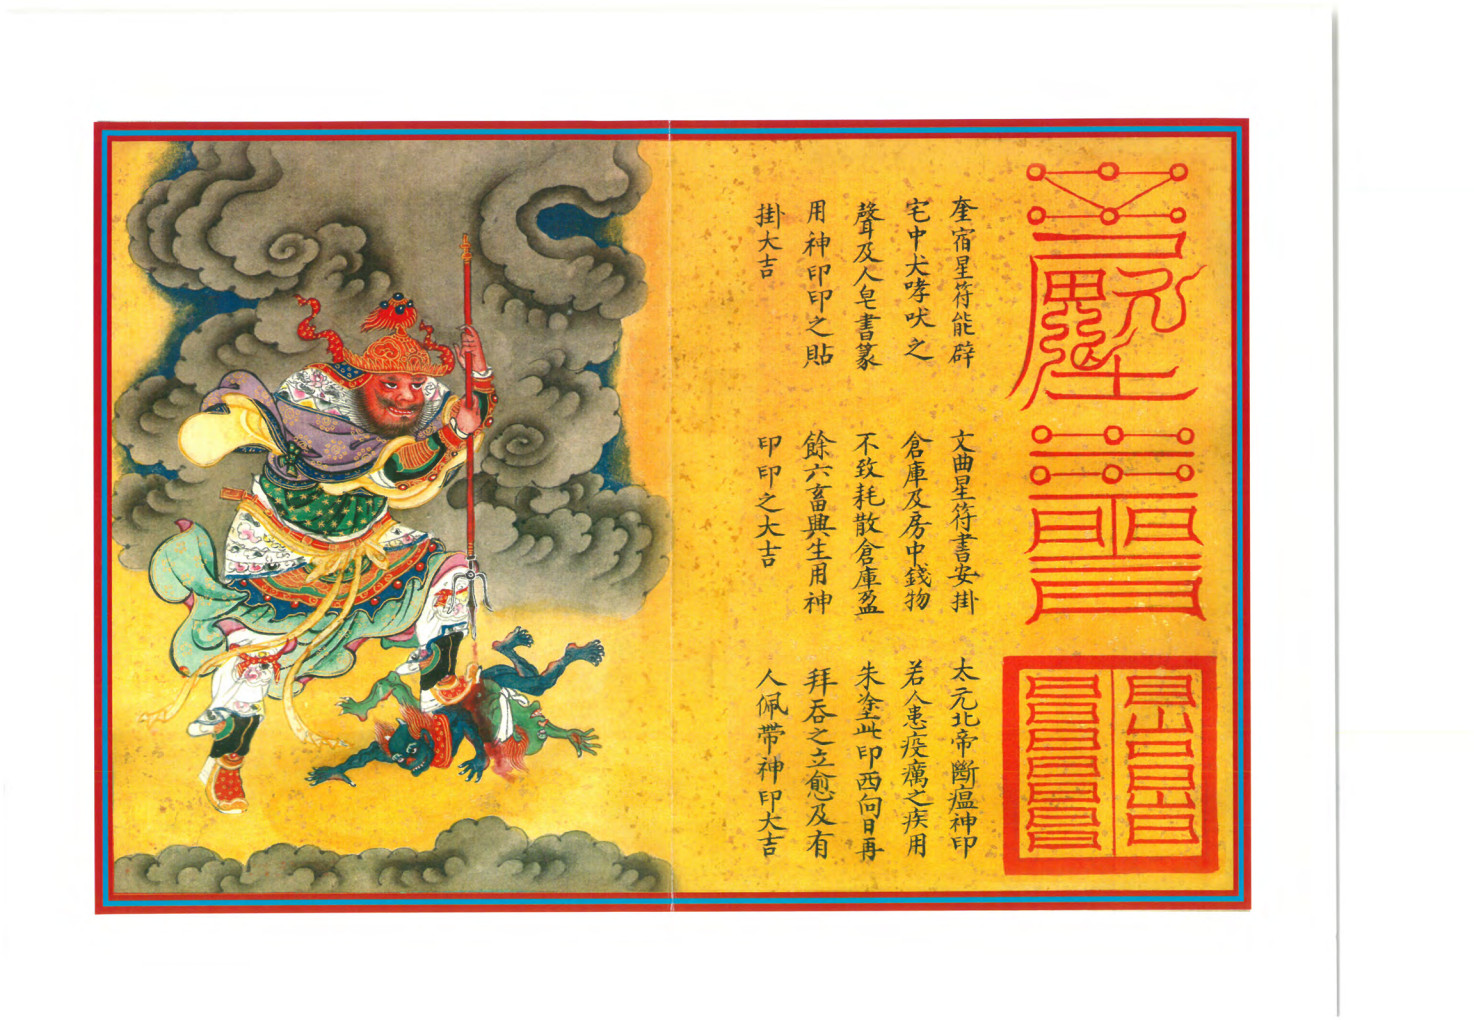 奎宿星符能辟
宅中犬哮吠之
聲及人皂書篆
用神印印之貼
掛大吉
文曲星符書安掛
倉庫及房中錢物
不致耗散倉庫盈
餘六畜興生用神
印印之大吉
太元北帝斷瘟神印
若人患疫癘之疾用
朱塗此印西向日再
拜吞之立愈及有
人佩帶神印大吉